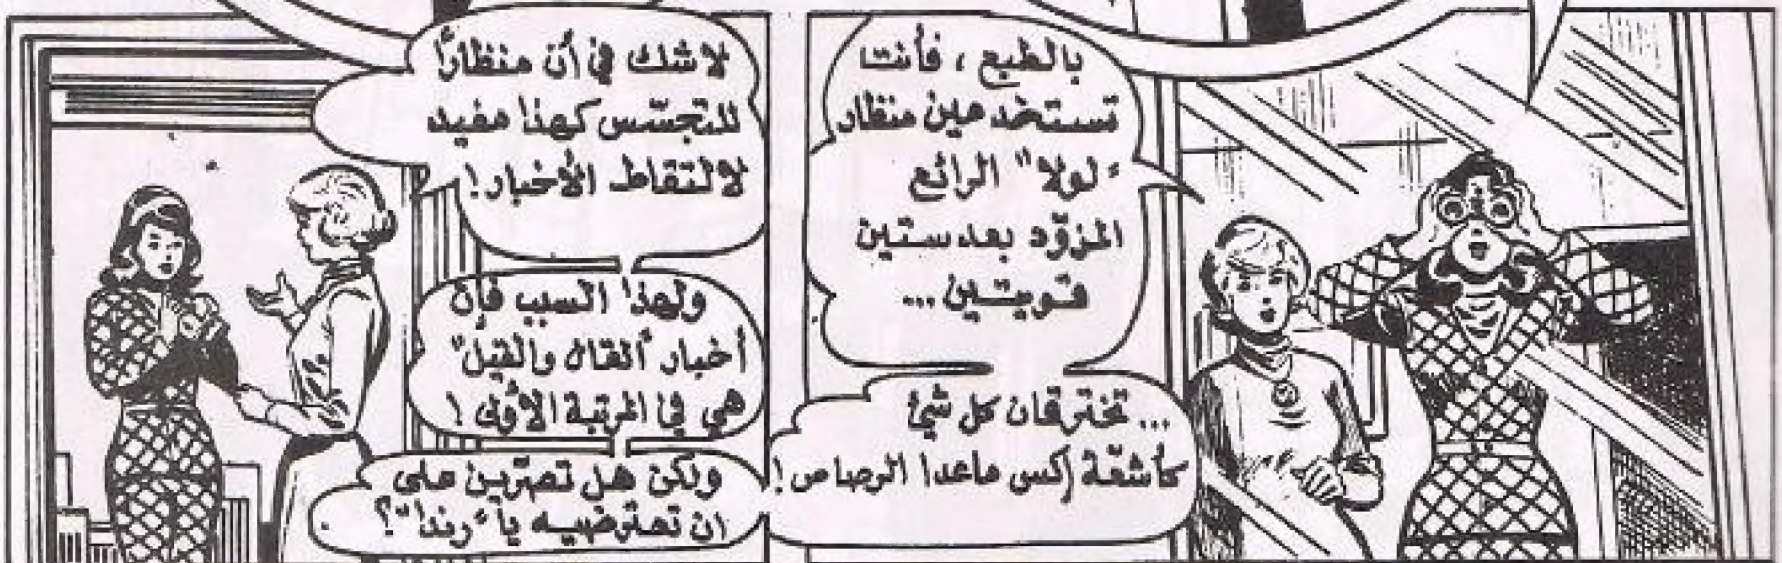 بالطبع، فأنت
تستخدمين منظار
"لولا" الرائع
المزوّد بعدستين
قويتين...
... تخترقان كل شيئ
كأشعّة إكس ماعدا الرصاص!
لا شك في أن منظارًا
للتجسّس كهذا مفيد
لالتقاط الأخبار!
ولهذا السبب فإن
أخبار "القال والقيل"
هي في المرتبة الأولى!
ولكن هل تصرّين على
ان تعترضيه يا "رندا"؟